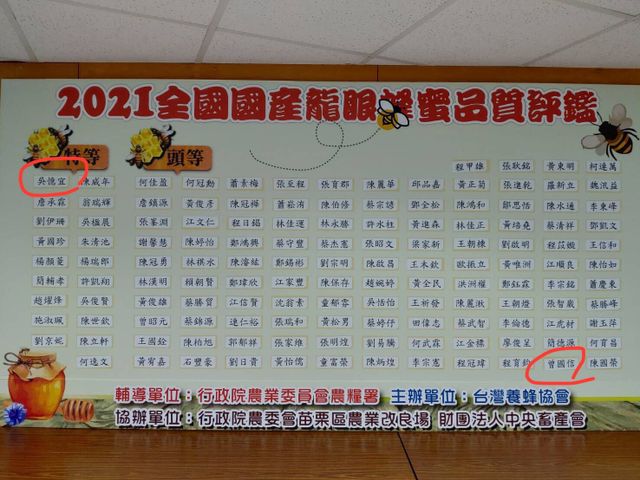 2021全國國產龍眼蜂蜜品質評鑑
特等 頭等
程甲雄 張耿銘 黃東明 柯連萬
吳憶宜 陳威年 何佳盈 何冠勳 蕭素梅 張至程 張育郡 陳麗華 邱品嘉 黃正菊 張進乾 羅新立 魏汎益
詹承霖 翁瑞輝 詹鎮源 黃俊彥 陳冠樺 蕭崧洧 陳怡修 蔡宗諺 鄭全松 陳鴻和 鄒思恬 陳永通 李東峰
劉伊珊 吳楹晨 張峯淵 江文仁 程日錩 林佳運 林永勝 許水柱 黃進森 林佳正 黃培堯 蔡清祥 鄧凱文
黃國珍 朱清池 謝馨慧 陳婷怡 鄭鴻興 蔡守豐 蔡杰憲 張昭文 梁家新 王朝棟 劉啟明 王信和
楊顏蔓 楊瑞郎 陳冠勇 林祺水 陳濬鋐 鄭錫彬 劉宗明 陳啟昌 王木欽 歐振立 黃唯洲 江順良 陳怡如
簡輔孝 許凱翔 林漢明 賴朝賢 鄭瑋欣 江家豐 陳保存 趙婉婷 黃全民 洪洲權 鄭鈺霖 李宗銘 蕭慶東
趙燿烽 吳俊賢 黃俊雄 蔡勝貿 江信賢 沈翁素 童郁雰 吳恬怡 王祈發 陳麗湫 王朝燈 張智崴 蔡勝峰
施淑珮 陳世欽 曾昭元 蔡錦源 連仁裕 張瑞和 黃松男 蔡婷伃 田偉志 蔡武智 李倫德 江虎材 謝玉萍
劉京妮 陳立軒 王國銓 陳柏旭 郭郁祥 張家維 張明煌 劉易騰 何武霖 江金標 廖俊呈 簡德源 何育昌
何逸文 黃宥嘉 石豐豪 劉日貴 黃怡儒 童富榮 陳炳煌 李宗憲 程冠瑋 程育鈞 曾國信 陳國榮
輔導單位：行政院農業委員會農糧署 主辦單位：台灣養蜂協會
協辦單位：行政院農委會苗栗區農業改良場 財團法人中央畜產會